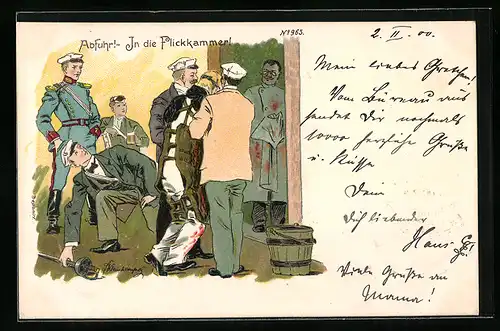 Abfuhr! - In die Flickkammer!
No 965.
2. II. 00.
Mein liebes Gretchen!
Vom Bureau aus
sendet Dir nochmals
1000 herzliche Grüße
u. Küsse
Dein
Dich liebender
Hans
Viele Grüße an
Mama!